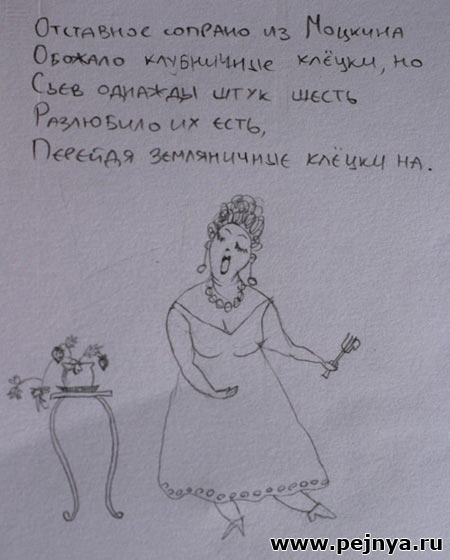 Отставное сопрано из Моцкина
Обожало клубничные клёцки, но
Съев однажды штук шесть
Разлюбило их есть,
Перейдя земляничные клёцки на.
www.pejnya.ru